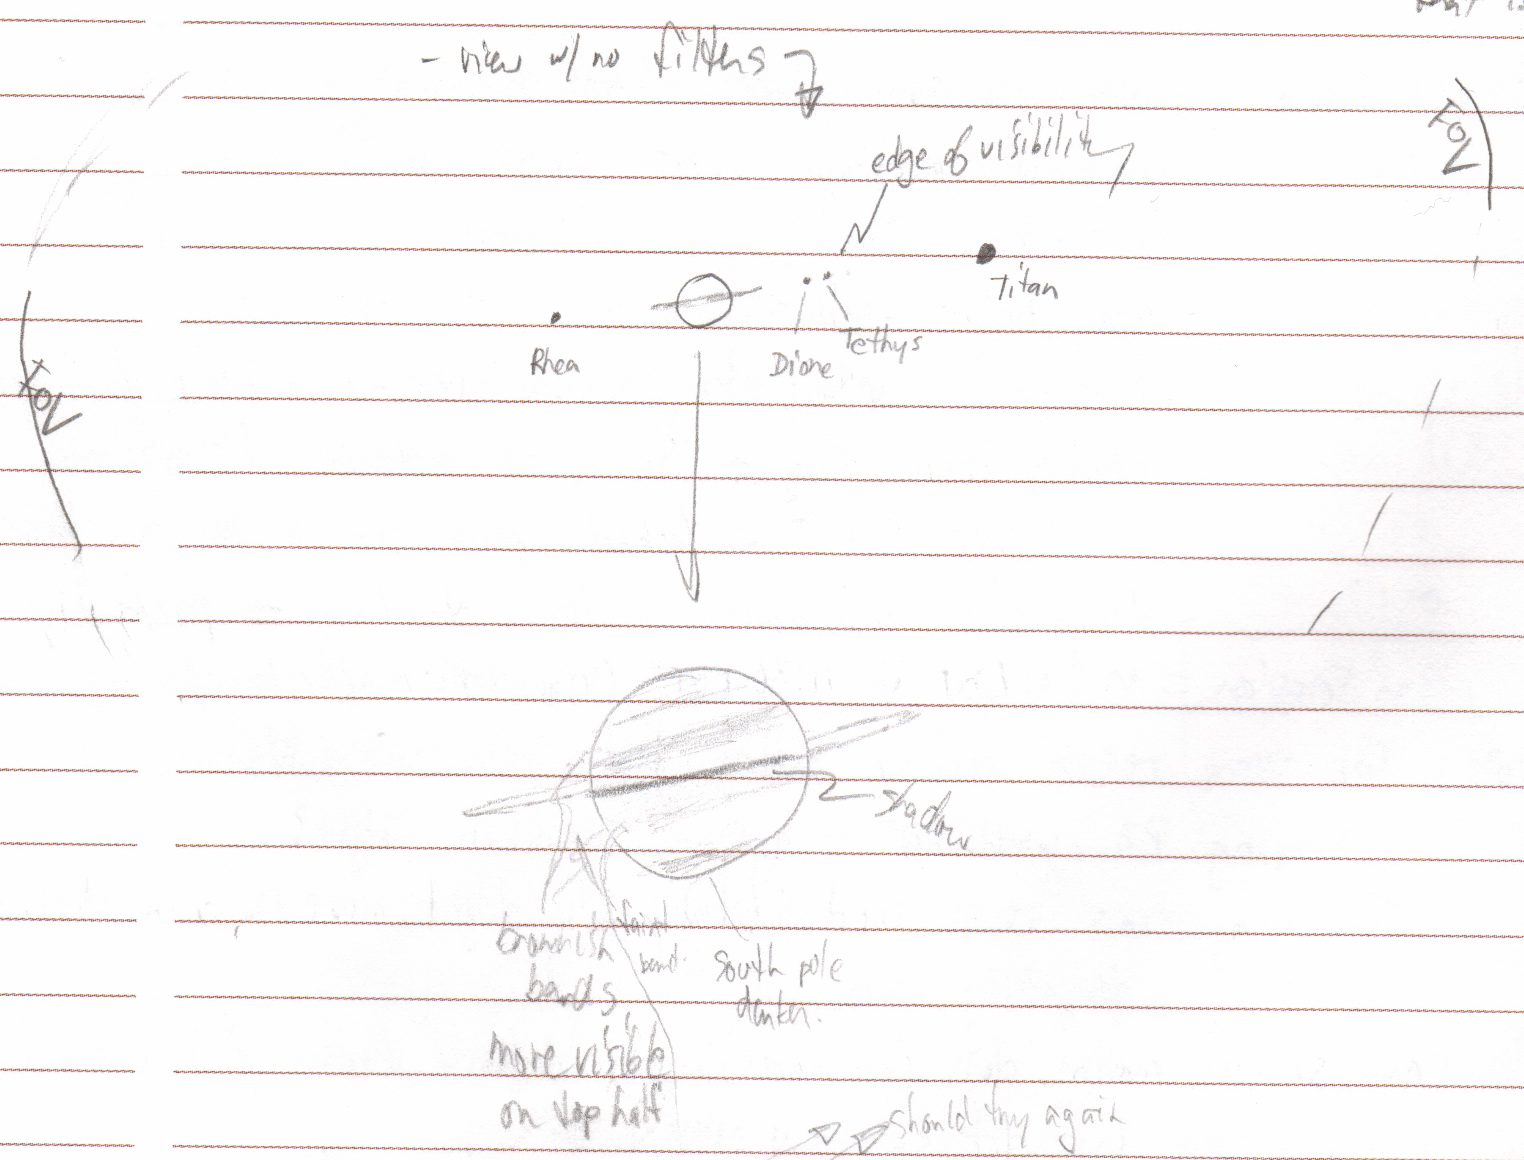 - view w/ no filters
edge of visibility
FOV
Titan
Tethys
Rhea
Dione
FOV
shadow
brownish
bands
more visible
on top half
faint
band.
south pole
darker.
should try again